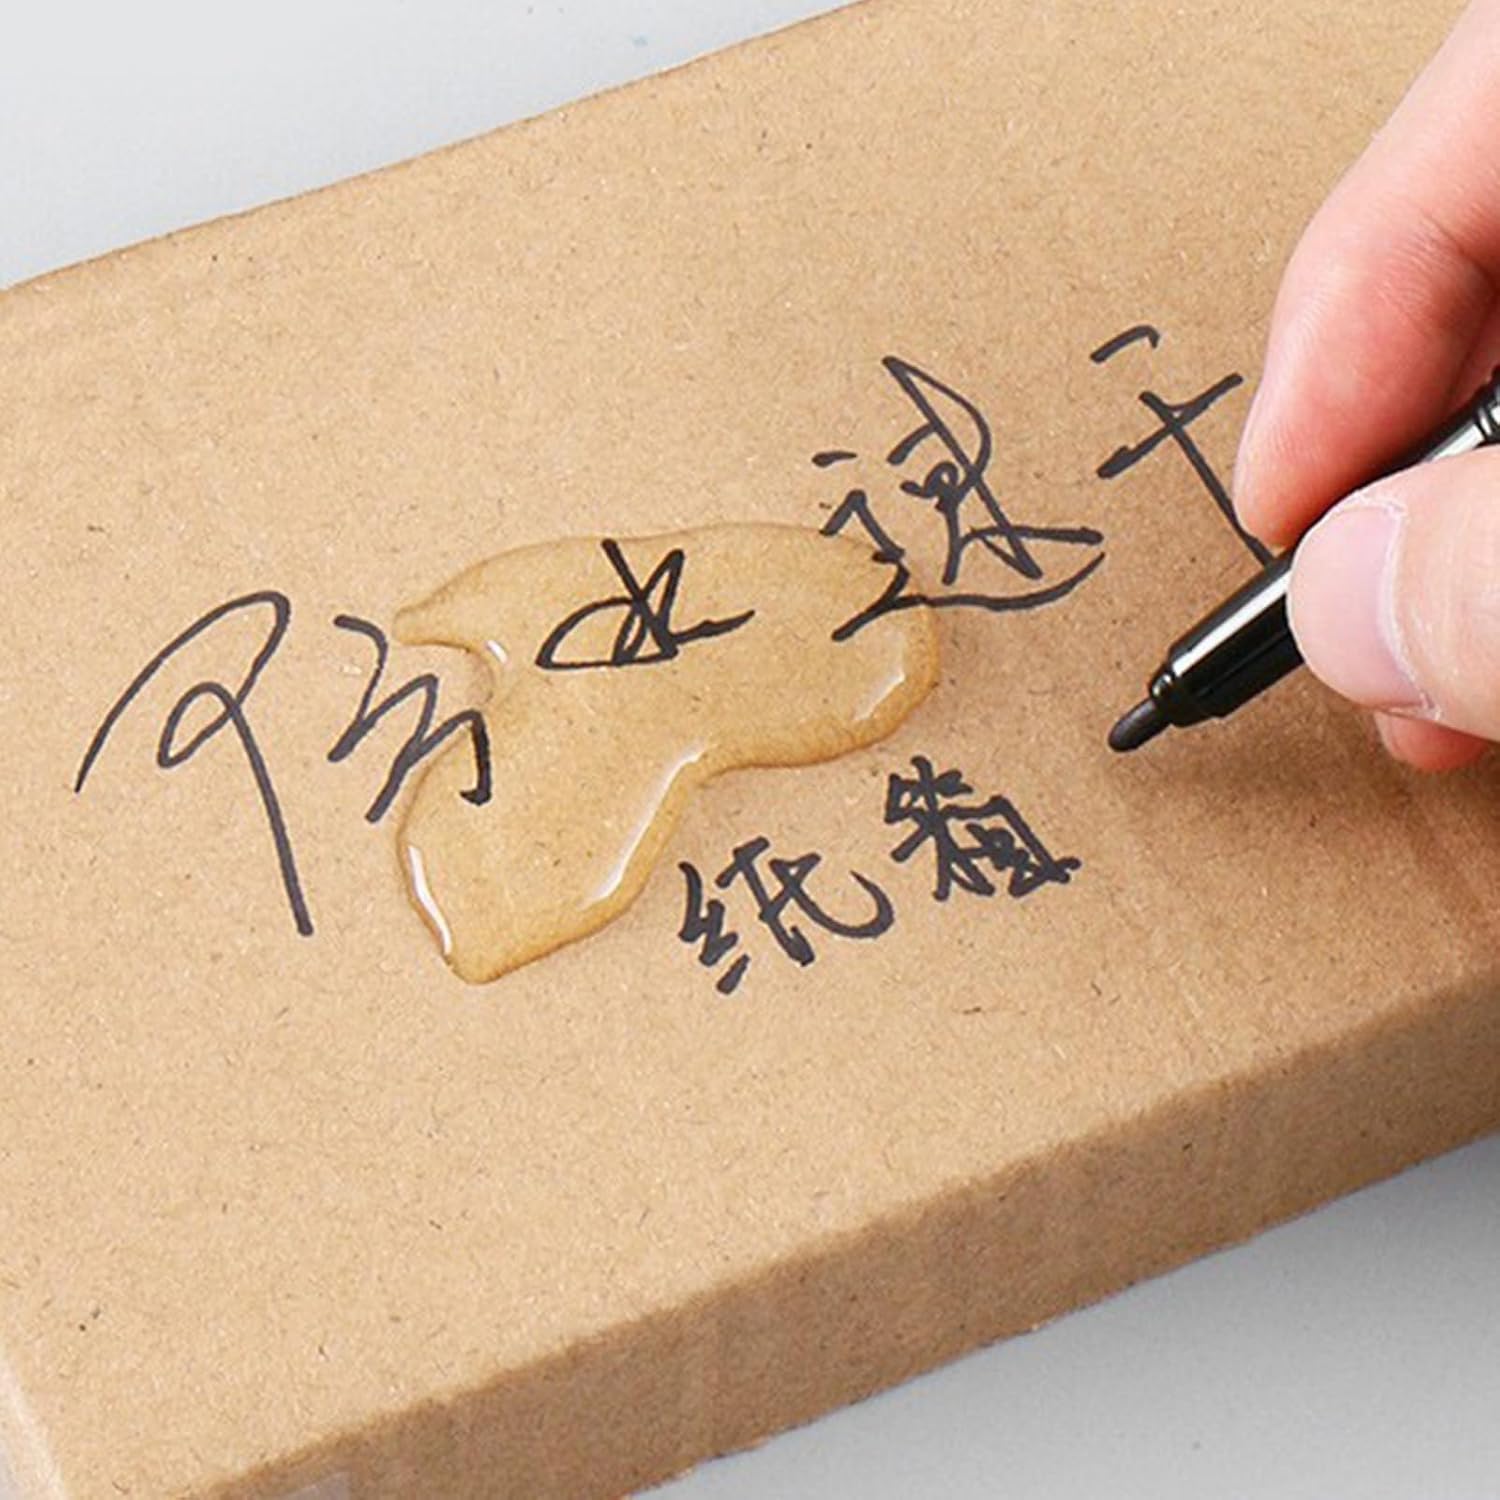 防水速干
纸箱